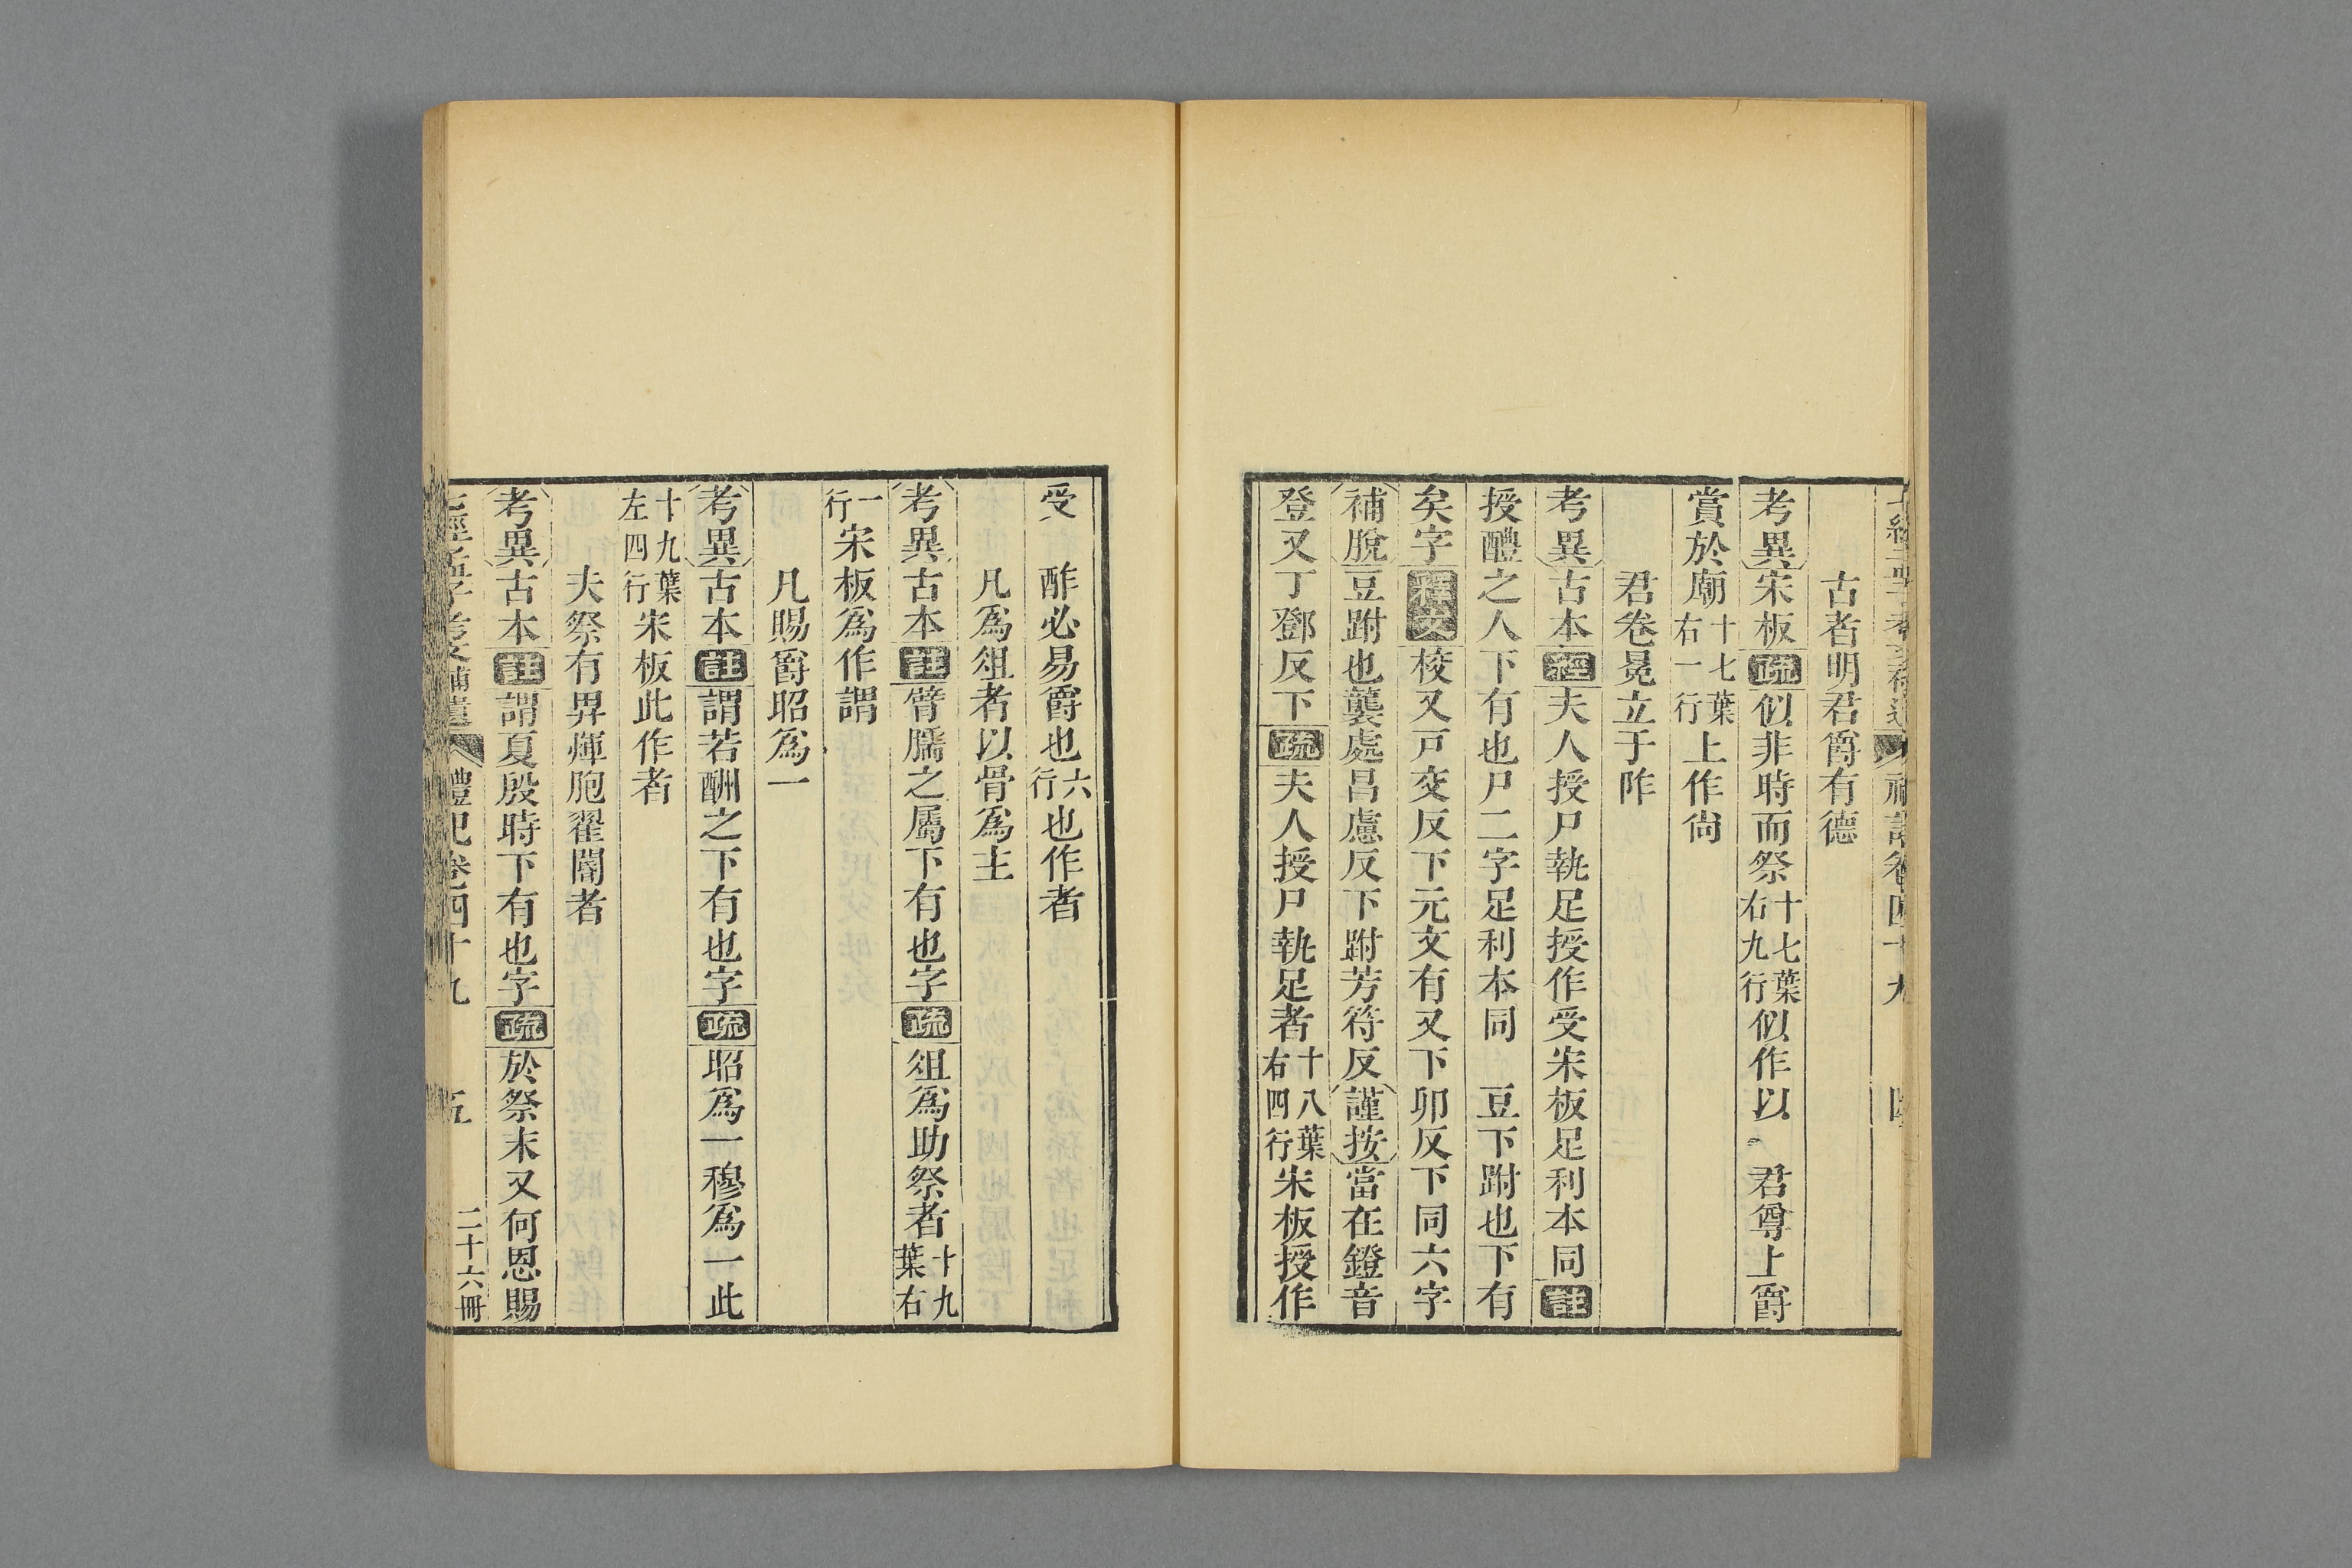 古者明君爵有德
考異宋板疏似非時而祭十七葉右九行似作以　君尊上爵
賞於廟十七葉右一行上作尙
君卷冕立于阼
考異古本經夫人授尸執足授作受宋板足利本同註
授醴之人下有也尸二字足利本同　豆下跗也下有
矣字釋文校又戸交反下元文有又下卯反下同六字
補脫豆跗也襲處昌慮反下跗芳符反謹按當在鐙音
登又丁鄧反下疏夫人授尸執足者十八葉右四行宋板授作
受　酢必易爵也六行也作者
凡爲俎者以骨爲主
考異古本註臂臑之屬下有也字疏俎爲助祭者十九葉右
一行宋板爲作謂
凡賜爵昭爲一
考異古本註謂若酬之下有也字疏昭爲一穆爲一此
十九葉左四行宋板此作者
夫祭有畀煇胞翟閽者
考異古本註謂夏殷時下有也字疏於祭末又何恩賜
七經孟子考文補遺　禮記卷四十九　五　二十六冊